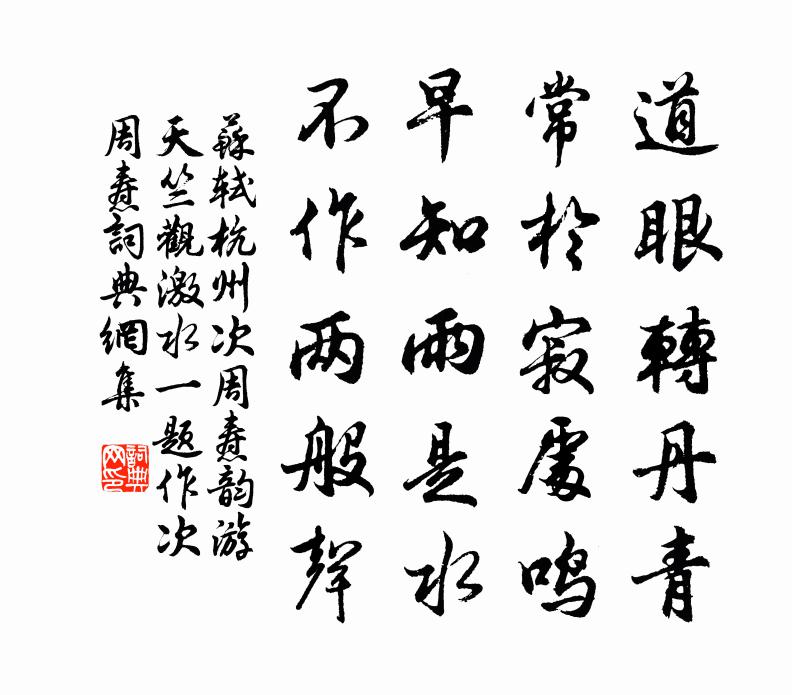 道眼轉丹青
常於寂處鳴
早知雨是水
不作两般聲
蘇轼杭州次周焘韵游
天竺觀激水一题作次
周焘詞典網集
詞典网印